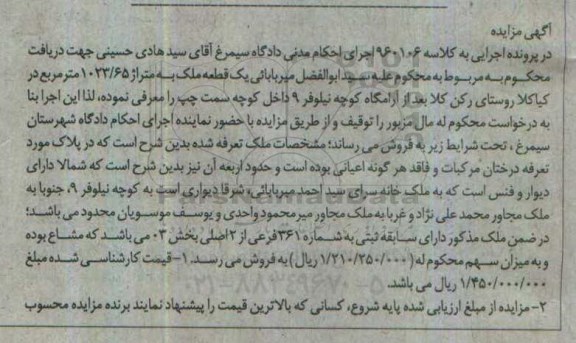 آگهی مزایده
در پرونده اجرایی به کلاسه ۹۶۰۱۰۶ اجرای احکام مدنی دادگاه سیمرغ آقای سید هادی حسینی جهت دریافت
محکوم به مربوط به محکوم علیه سید ابوالفضل میربابائی یک قطعه ملک به متراژ ۱۰۲۳/۶۵ مترمربع در
کیاکلا روستای رکن کلا بعد از آرامگاه کوچه نیلوفر ۹ داخل کوچه سمت چپ را معرفی نموده، لذا این اجرا بنا
به درخواست محکوم له مال مزبور را توقیف و از طریق مزایده با حضور نماینده اجرای احکام دادگاه شهرستان
سیمرغ ، تحت شرایط زیر به فروش می رساند؛ مشخصات ملک تعرفه شده بدین شرح است که در پلاک مورد
تعرفه درختان مرکبات و فاقد هر گونه اعیانی بوده است و حدود اربعه آن نیز بدین شرح است که شمالا دارای
دیوار و فنس است که به ملک خانه سرای سید احمد میربابائی، شرقا دیواری است به کوچه نیلوفر ۹، جنوبا به
ملک مجاور محمد علی نژاد و غربا به ملک مجاور میرمحمود واحدی و یوسف موسویان محدود می باشد؛
در ضمن ملک مذکور دارای سابقه ثبتی به شماره ۳۶۱ فرعی از ۲ اصلی بخش ۰۳ می باشد که مشاع بوده
و به میزان سهم محکوم له (۱/۲۱۰/۲۵۰/۰۰۰ ریال) به فروش می رسد. ۱- قیمت کارشناسی شده مبلغ
۱/۴۵۰/۰۰۰/۰۰۰ ریال می باشد.
۲- مزایده از مبلغ ارزیابی شده پایه شروع، کسانی که بالاترین قیمت را پیشنهاد نمایند برنده مزایده محسوب
ParsNamadData
۰۲۱-۸۸۳۴۹۶۷۰-۵